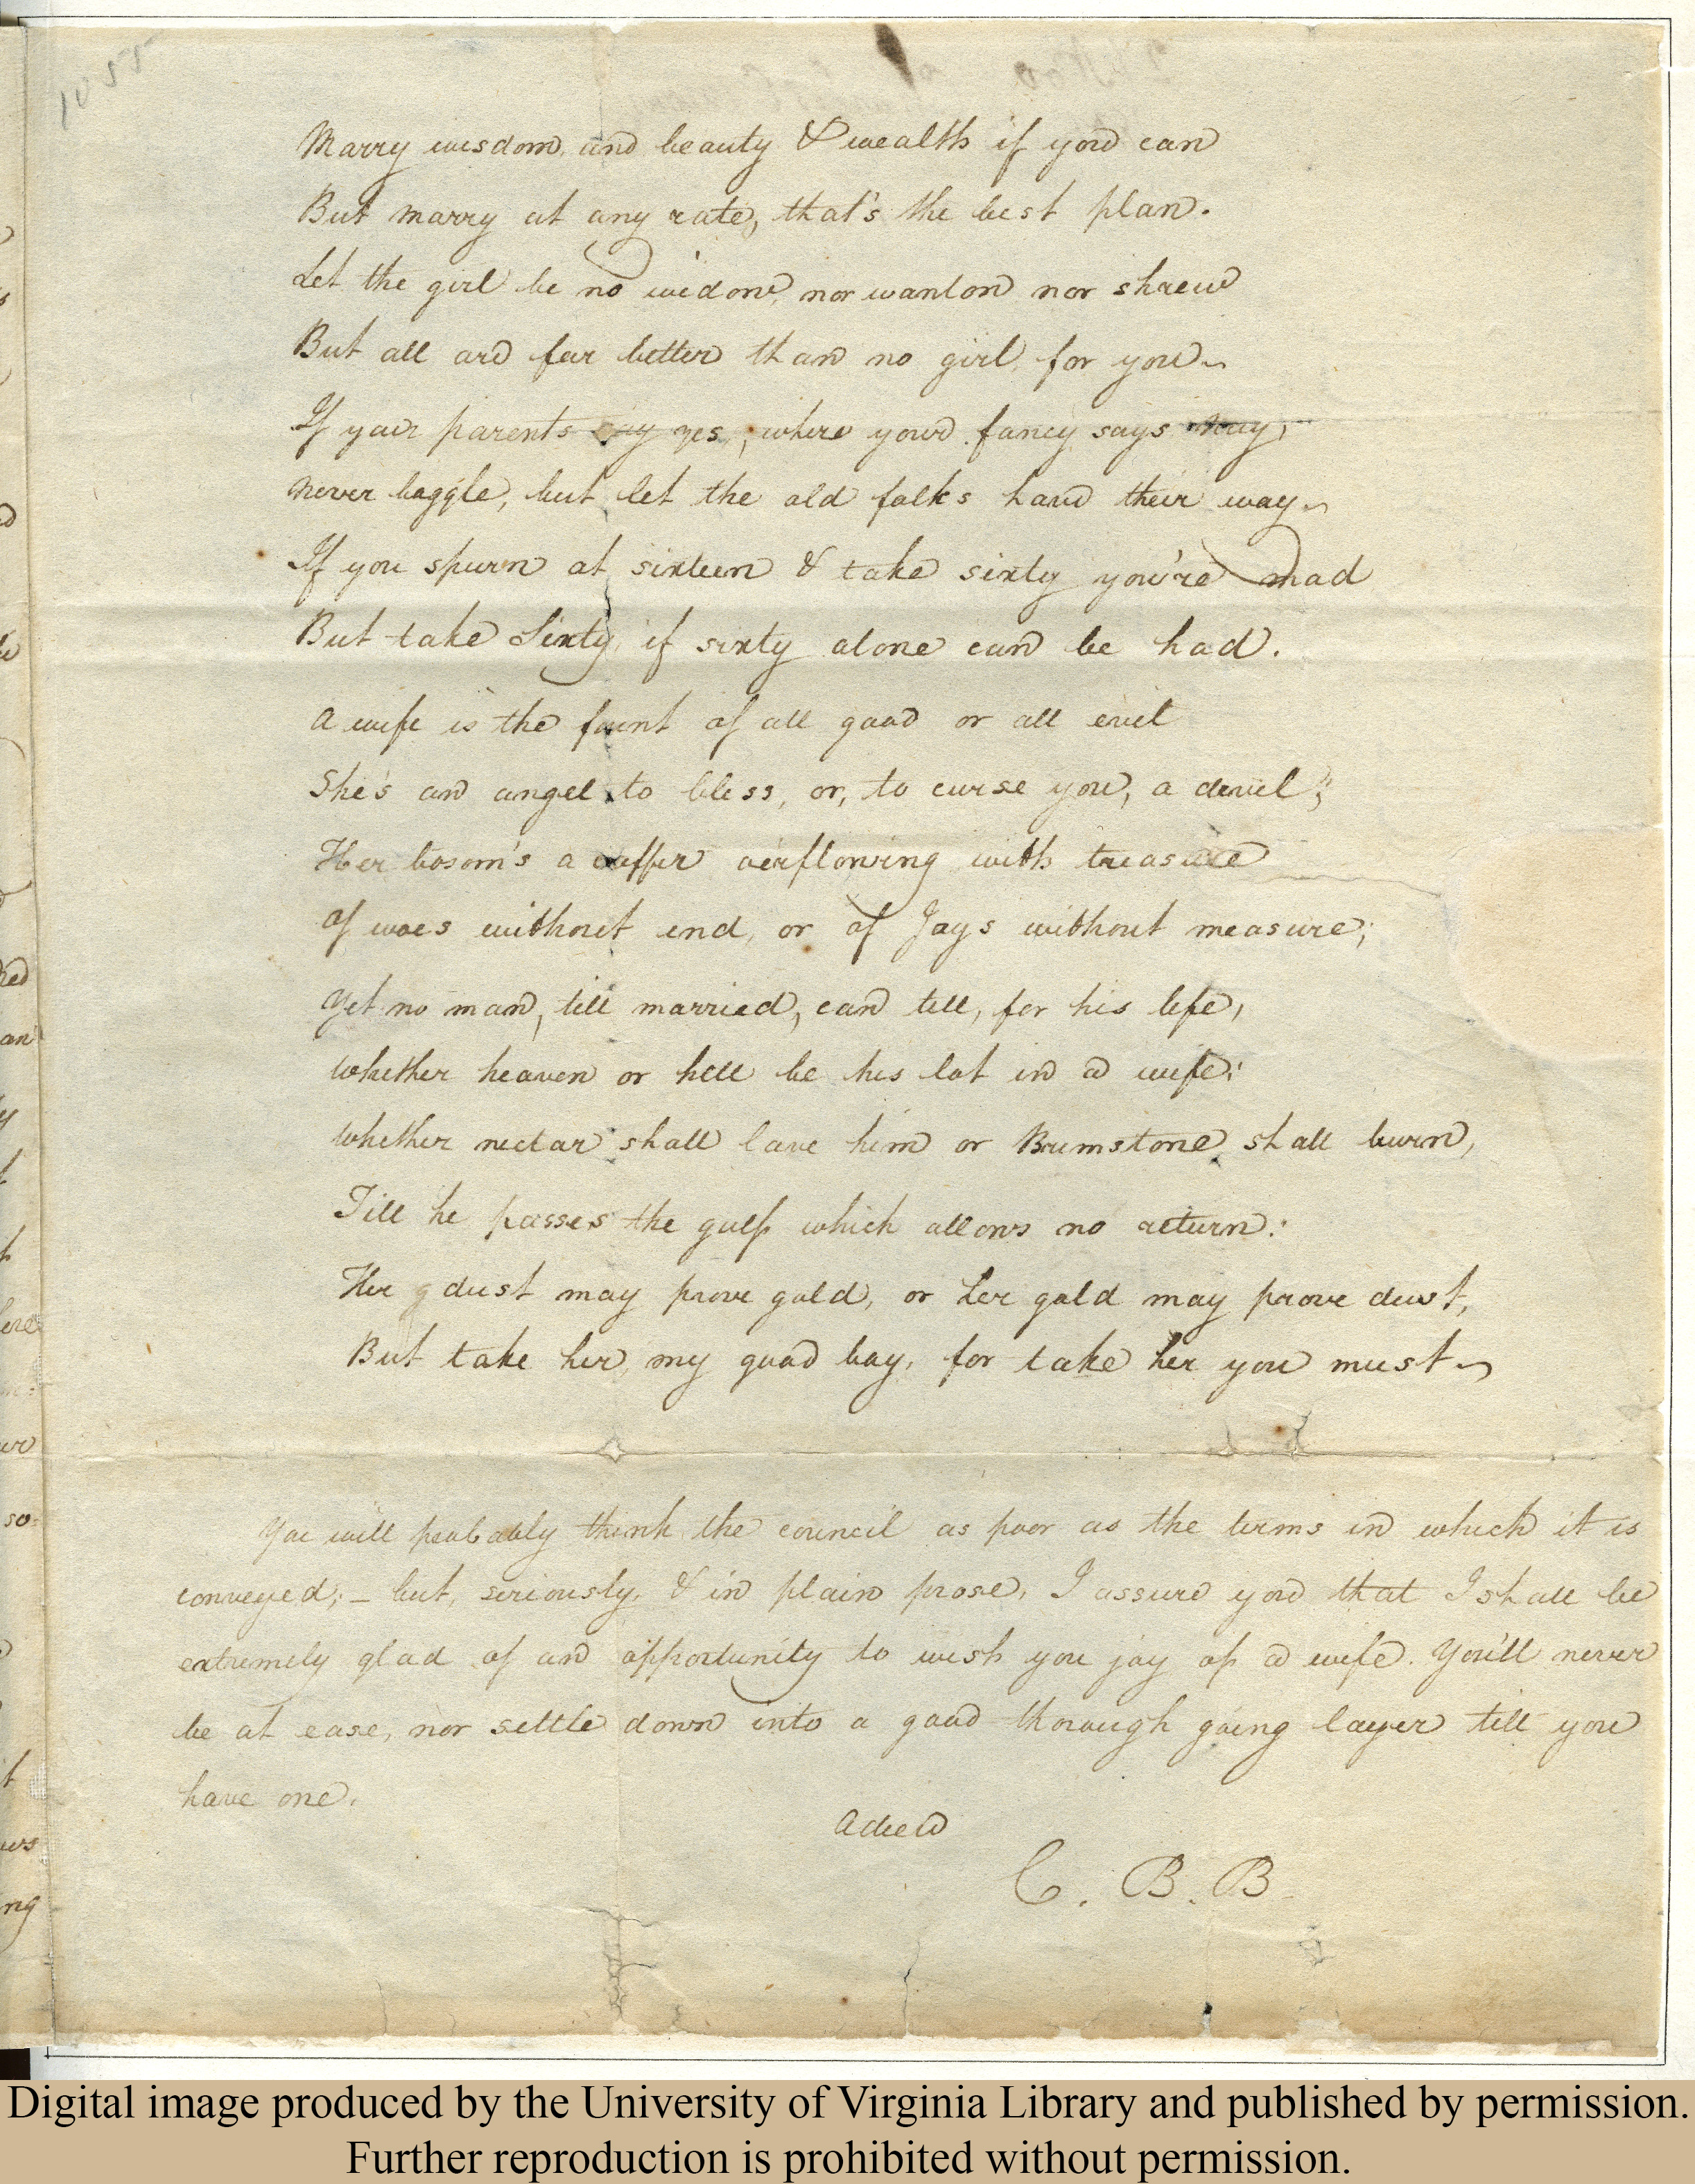 1055
Marry wisdom, and beauty & wealth if you can
But marry at any rate, that's the best plan.
Let the girl be no widow, nor wanton nor shrew
But all are far better than no girl, for you~
If your parents say yes, where your fancy says nay,
Never boggle, but let the old folks have their way~
If you spurn at sixteen & take sixty you're mad
But take Sixty, if sixty alone can be had.
A wife is the fount of all good or all evil
She's an angel to bless, or, to curse you, a devil;
Her bosom's a coffer o'erflowing with treasure
Of woes without end, or of Joys without measure;
Yet no man, till married, can tell, for his life,
Whether heaven or hell be his lot in a wife:
Whether nectar shall lave him or Brimstone shall burn,
Till he passes the gulf which allows no return:
Her g dust may prove gold, or her gold may prove dust,
But take her, my good boy, for take her you must~
You will probably think the council as poor as the terms in which it is
conveyed; – but, seriously, & in plain prose, I assure you that I shall be
extremely glad of an opportunity to wish you joy of a wife. You'll never
be at ease, nor settle down into a good thorough going layer till you
have one.
Adieu
C. B. B
Digital image produced by the University of Virginia Library and published by permission.
Further reproduction is prohibited without permission.